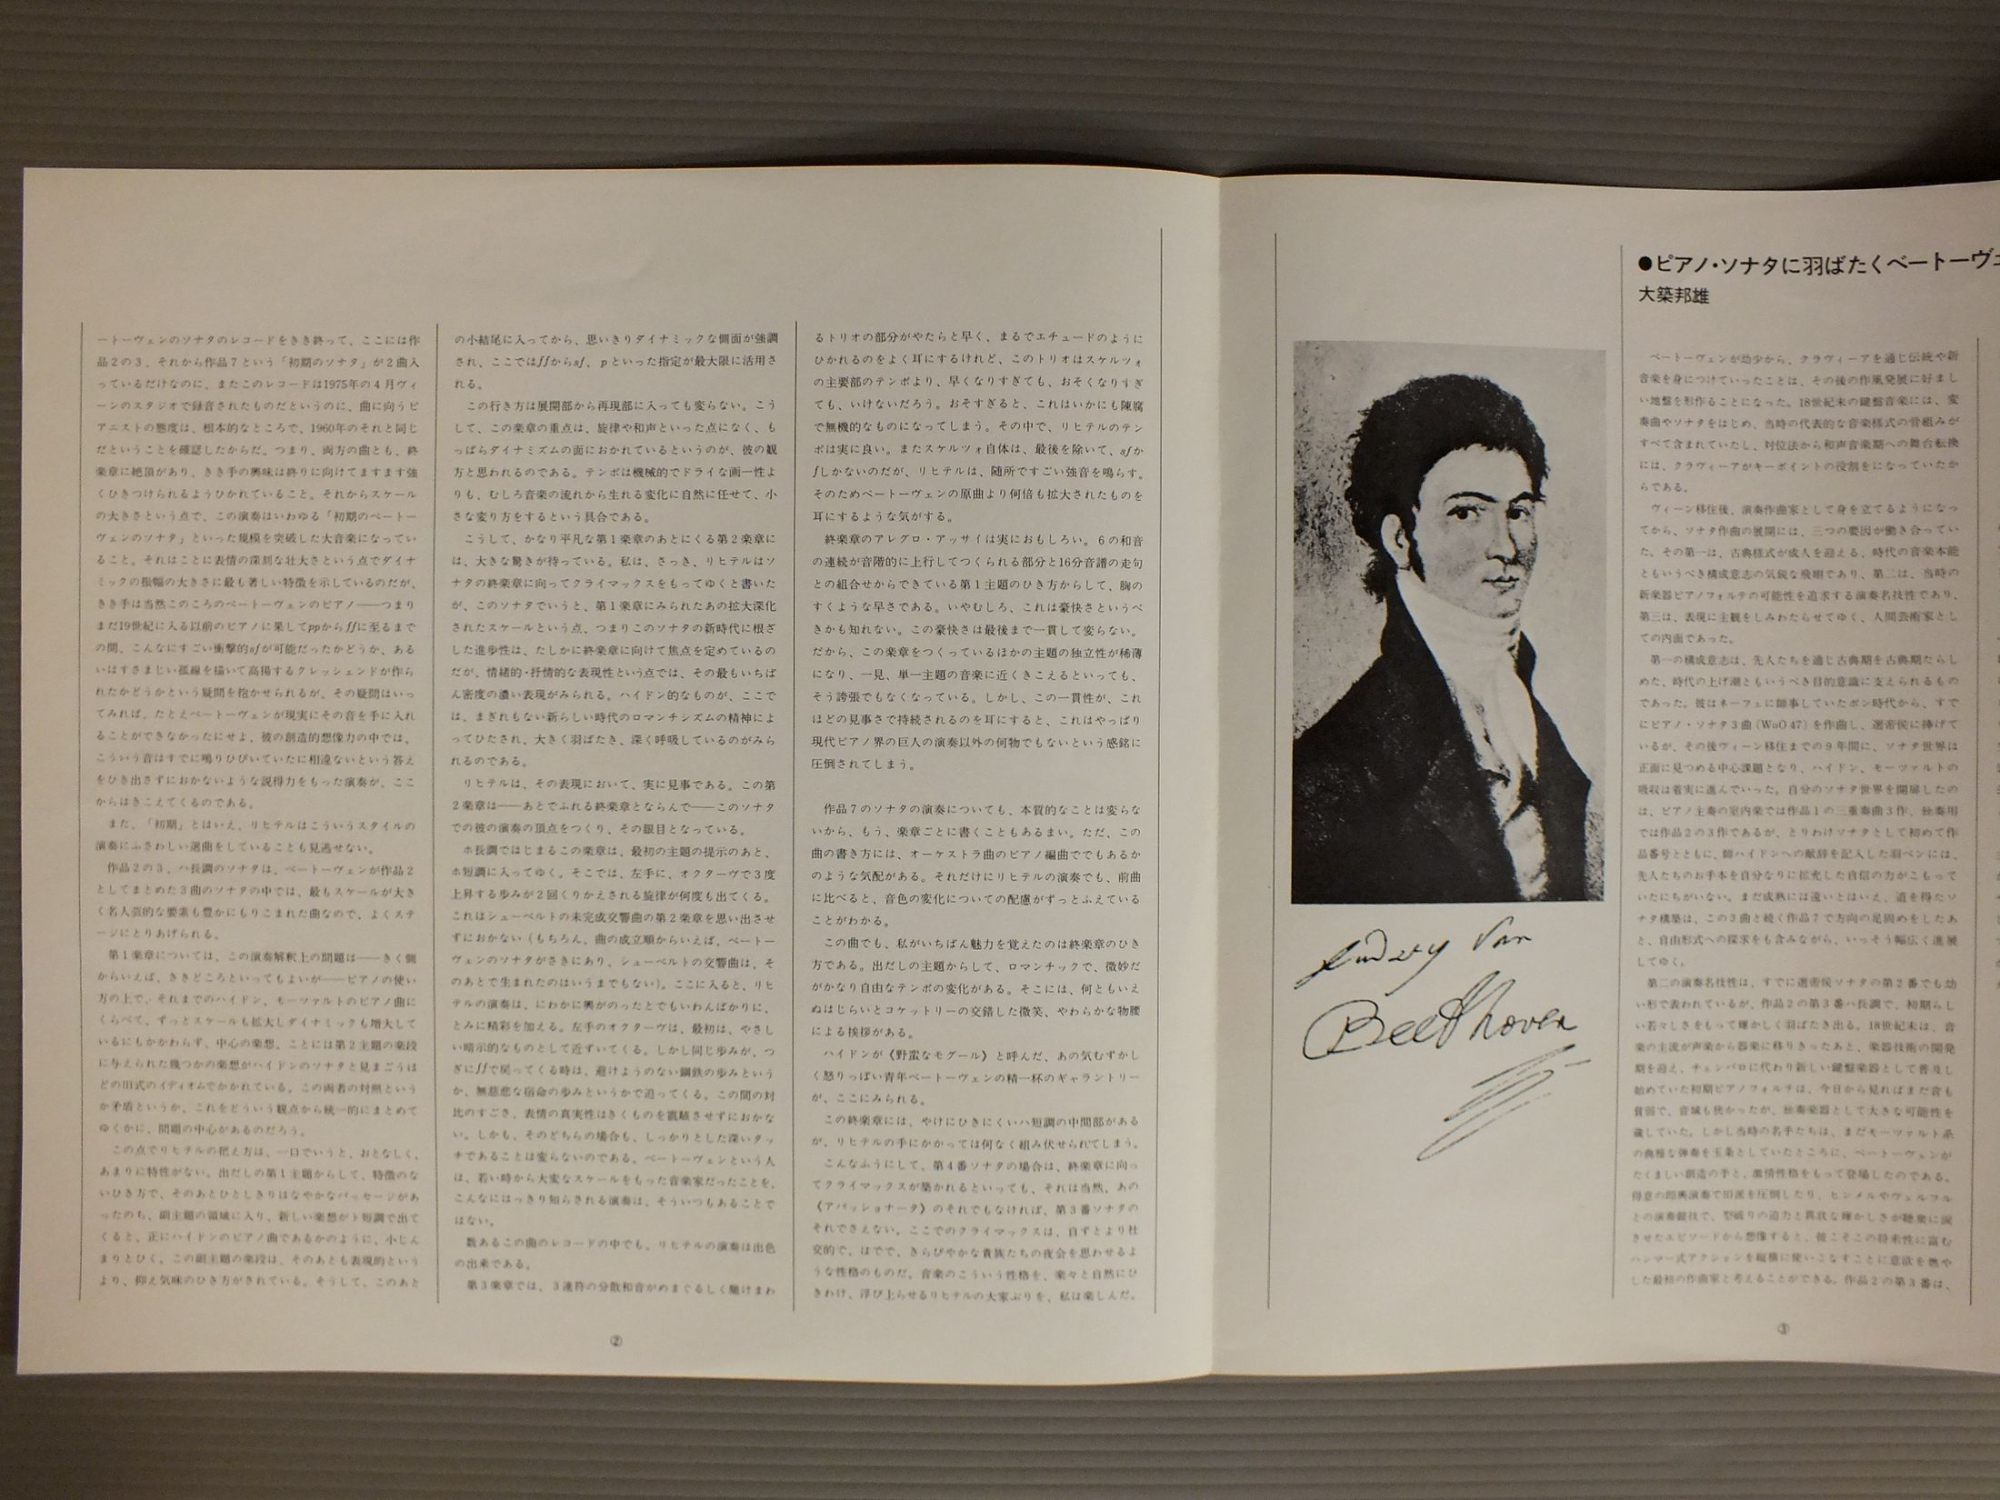 ートーヴェンのソナタのレコードをきき終って、ここには作
品2の3、それから作品7という「初期のソナタ」が2曲入
っているだけなのに、またこのレコードは1975年の4月ヴィ
ーンのスタジオで録音されたものだというのに、曲に向うピ
アニストの態度は、根本的なところで、1960年のそれと同じ
だということを確認したからだ。つまり、両方の曲とも、終
楽章に絶頂があり、きき手の興味は終りに向けてますます強
くひきつけられるようひかれていること。それからスケール
の大きさという点で、この演奏はいわゆる「初期のベートー
ヴェンのソナタ」といった規模を突破した大音楽になってい
ること。それはことに表情の深刻な壮大さという点でダイナ
ミックの振幅の大きさに最も著しい特徴を示しているのだが、
きき手は当然このころのベートーヴェンのピアノ――つまり
まだ19世紀に入る以前のピアノに果してppからffに至るまで
の間、こんなにすごい衝撃的sfが可能だったかどうか、ある
いはすさまじい弧線を描いて高揚するクレッシェンドが作ら
れたかどうかという疑問を抱かせられるが、その疑問はいっ
てみれば、たとえベートーヴェンが現実にその音を手に入れ
ることができなかったにせよ、彼の創造的想像力の中では、
こういう音はすでに鳴りひびいていたに相違ないという答え
をひき出さずにおかないような説得力をもった演奏が、ここ
からはきこえてくるのである。
また、「初期」とはいえ、リヒテルはこういうスタイルの
演奏にふさわしい選曲をしていることも見逃せない。
作品2の3、ハ長調のソナタは、ベートーヴェンが作品2
としてまとめた3曲のソナタの中では、最もスケールが大き
く名人芸的な要素も豊かにもりこまれた曲なので、よくステ
ージにとりあげられる。
第1楽章については、この演奏解釈上の問題は――きく側
からいえば、ききどころといってもよいが――ピアノの使い
方の上で、それまでのハイドン、モーツァルトのピアノ曲に
くらべて、ずっとスケールも拡大しダイナミックも増大して
いるにもかかわらず、中心の楽想、ことには第2主題の楽段
に与えられた幾つかの楽想がハイドンのソナタと見まごうほ
どの旧式のイディオムでかかれている。この両者の対照という
か矛盾というか、これをどういう観点から統一的にまとめて
ゆくかに、問題の中心があるのだろう。
この点でリヒテルの把え方は、一口でいうと、おとなしく、
あまりに特性がない。出だしの第1主題からして、特徴のな
いひき方で、そのあとひとしきりはなやかなパッセージがあ
ったのち、副主題の領域に入り、新しい楽想がト短調で出て
くると、正にハイドンのピアノ曲であるかのように、小じん
まりとひく。この副主題の楽段は、そのあとも表現的という
より、抑え気味のひき方がされている。そうして、このあと
の小結尾に入ってから、思いきりダイナミックな側面が強調
され、ここではffからsf、pといった指定が最大限に活用さ
れる。
この行き方は展開部から再現部に入っても変らない。こう
して、この楽章の重点は、旋律や和声といった点になく、も
っぱらダイナミズムの面におかれているというのが、彼の観
方と思われるのである。テンポは機械的でドライな画一性よ
りも、むしろ音楽の流れから生れる変化に自然に任せて、小
さな変り方をするという具合である。
こうして、かなり平凡な第1楽章のあとにくる第2楽章に
は、大きな驚きが待っている。私は、さっき、リヒテルはソ
ナタの終楽章に向ってクライマックスをもってゆくと書いた
が、このソナタでいうと、第1楽章にみられたあの拡大深化
されたスケールという点、つまりこのソナタの新時代に根ざ
した進歩性は、たしかに終楽章に向けて焦点を定めているの
だが、情緒的・抒情的な表現性という点では、その最もいちば
ん密度の濃い表現がみられる。ハイドン的なものが、ここで
は、まぎれもない新らしい時代のロマンチシズムの精神によ
ってひたされ、大きく羽ばたき、深く呼吸しているのがみら
れるのである。
リヒテルは、その表現において、実に見事である。この第
2楽章は――あとでふれる終楽章とならんで――このソナタ
での彼の演奏の頂点をつくり、その眼目となっている。
ホ長調ではじまるこの楽章は、最初の主題の提示のあと、
ホ短調に入ってゆく。そこでは、左手に、オクターヴで3度
上昇する歩みが2回くりかえされる旋律が何度も出てくる。
これはシューベルトの未完成交響曲の第2楽章を思い出させ
ずにおかない（もちろん、曲の成立順からいえば、ベートー
ヴェンのソナタがさきにあり、シューベルトの交響曲は、そ
のあとで生まれたのはいうまでもない）。ここに入ると、リヒ
テルの演奏は、にわかに興がのったとでもいわんばかりに、
とみに精彩を加える。左手のオクターヴは、最初は、やさし
い暗示的なものとして近ずいてくる。しかし同じ歩みが、つ
ぎにffで戻ってくる時は、避けようのない鋼鉄の歩みという
か、無慈悲な宿命の歩みというかで迫ってくる。この間の対
比のすごさ、表情の真実性はきくものを震駭させずにおかな
い。しかも、そのどちらの場合も、しっかりとした深いタッ
チであることは変らないのである。ベートーヴェンという人
は、若い時から大変なスケールをもった音楽家だったことを、
こんなにはっきり知らされる演奏は、そういつもあることで
はない。
数あるこの曲のレコードの中でも、リヒテルの演奏は出色
の出来である。
第3楽章では、3連符の分散和音がめまぐるしく馳けまわ
るトリオの部分がやたらと早く、まるでエチュードのように
ひかれるのをよく耳にするけれど、このトリオはスケルツォ
の主要部のテンポより、早くなりすぎても、おそくなりすぎ
ても、いけないだろう。おそすぎると、これはいかにも陳腐
で無機的なものになってしまう。その中で、リヒテルのテン
ポは実に良い。またスケルツォ自体は、最後を除いて、sfか
fしかないのだが、リヒテルは、随所ですごい強音を鳴らす。
そのためベートーヴェンの原曲より何倍も拡大されたものを
耳にするような気がする。
終楽章のアレグロ・アッサイは実におもしろい。6の和音
の連続が音階的に上行してつくられる部分と16分音譜の走句
との組合せからできている第1主題のひき方からして、胸の
すくような早さである。いやむしろ、これは豪快さというべ
きかも知れない。この豪快さは最後まで一貫して変らない。
だから、この楽章をつくっているほかの主題の独立性が稀薄
になり、一見、単一主題の音楽に近くきこえるといっても、
そう誇張でもなくなっている。しかし、この一貫性が、これ
ほどの見事さで持続されるのを耳にすると、これはやっぱり
現代ピアノ界の巨人の演奏以外の何物でもないという感銘に
圧倒されてしまう。
作品7のソナタの演奏についても、本質的なことは変らな
いから、もう、楽章ごとに書くこともあるまい。ただ、この
曲の書き方には、オーケストラ曲のピアノ編曲ででもあるか
のような気配がある。それだけにリヒテルの演奏でも、前曲
に比べると、音色の変化についての配慮がずっとふえている
ことがわかる。
この曲でも、私がいちばん魅力を覚えたのは終楽章のひき
方である。出だしの主題からして、ロマンチックで、微妙だ
がかなり自由なテンポの変化がある。そこには、何ともいえ
ぬはじらいとコケットリーの交錯した微笑、やわらかな物腰
による挨拶がある。
ハイドンが《野蛮なモグール》と呼んだ、あの気むずかし
く怒りっぽい青年ベートーヴェンの精一杯のギャラントリー
が、ここにみられる。
この終楽章には、やけにひきにくいハ短調の中間部がある
が、リヒテルの手にかかっては何なく組み伏せられてしまう。
こんなふうにして、第4番ソナタの場合は、終楽章に向っ
てクライマックスが築かれるといっても、それは当然、あの
《アパッショナータ》のそれでもなければ、第3番ソナタの
それでさえない。ここでのクライマックスは、自ずとより社
交的で、はでで、きらびやかな貴族たちの夜会を思わせるよ
うな性格のものだ。音楽のこういう性格を、楽々と自然にひ
きわけ、浮び上らせるリヒテルの大家ぶりを、私は楽しんだ。
②
Ludwig Van
Beethoven
●ピアノ・ソナタに羽ばたくベートーヴェ
大築邦雄
ベートーヴェンが幼少から、クラヴィーアを通じ伝統や新
音楽を身につけていったことは、その後の作風発展に好まし
い地盤を形作ることになった。18世紀末の鍵盤音楽には、変
奏曲やソナタをはじめ、当時の代表的な音楽様式の骨組みが
すべて含まれていたし、対位法から和声音楽期への舞台転換
には、クラヴィーアがキーポイントの役割をになっていたか
らである。
ヴィーン移住後、演奏作曲家として身を立てるようになっ
てから、ソナタ作曲の展開には、三つの要因が働き合ってい
た。その第一は、古典様式が成人を迎える、時代の音楽本能
ともいうべき構成意志の気鋭な飛翔であり、第二は、当時の
新楽器ピアノフォルテの可能性を追求する演奏名技性であり、
第三は、表現に主観をしみわたらせてゆく、人間芸術家とし
ての内面であった。
第一の構成意志は、先人たちを通じ古典期を古典期たらし
めた、時代の上げ潮ともいうべき目的意識に支えられるもの
であった。彼はネーフェに師事していたボン時代から、すで
にピアノ・ソナタ3曲（WoO 47）を作曲し、選帝侯に捧げて
いるが、その後ヴィーン移住までの9年間に、ソナタ世界は
正面に見つめる中心課題となり、ハイドン、モーツァルトの
吸収は着実に進んでいった。自分のソナタ世界を開扉したの
は、ピアノ主奏の室内楽では作品1の三重奏曲3作、独奏用
では作品2の3作であるが、とりわけソナタとして初めて作
品番号とともに、師ハイドンへの献辞を記入した羽ペンには、
先人たちのお手本を自分なりに拡充した自信の力がこもって
いたにちがいない。まだ成熟には遠いとはいえ、道を得たソ
ナタ構築は、この3曲と続く作品7で方向の足固めをしたあ
と、自由形式への探求をも含みながら、いっそう幅広く進展
してゆく。
第二の演奏名技性は、すでに選帝侯ソナタの第2番でも幼
い形で表われているが、作品2の第3番ハ長調で、初期らし
い若々しさをもって輝かしく羽ばたき出る。18世紀末は、音
楽の主流が声楽から器楽に移りきったあと、楽器技術の開発
期を迎え、チェンバロに代わり新しい鍵盤楽器として普及し
始めていた初期ピアノフォルテは、今日から見ればまだ音も
貧弱で、音域も狭かったが、独奏楽器として大きな可能性を
蔵していた。しかし当時の名手たちは、まだモーツァルト系
の典雅な弾奏を玉条としていたところに、ベートーヴェンが
たくましい創造の手と、激情性格をもって登場したのである。
得意の即興演奏で旧派を圧倒したり、ヒンメルやヴェルフル
との演奏競技で、型破りの迫力と異状な輝かしさが聴衆に涙
させたエピソードから想像すると、彼こそこの将来性に富む
ハンマー式アクションを縦横に使いこなすことに意欲を燃や
した最初の作曲家と考えることができる。作品2の第3番は、
③